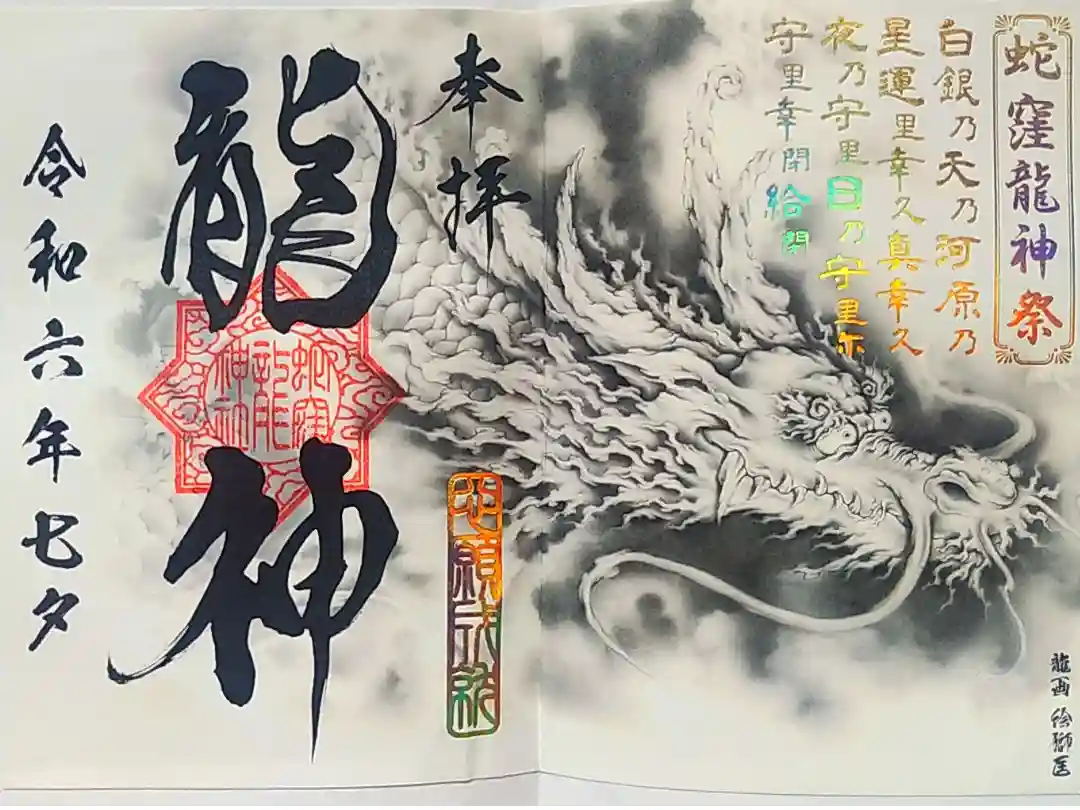 蛇窪龍神祭
白銀乃天乃河原乃
星運里幸久真幸久
夜乃守里日乃守里尓
守里幸閇給閇
奉拝
心願成就
龍神
蛇窪
龍
神社
令和六年七夕
龍画 絵獅